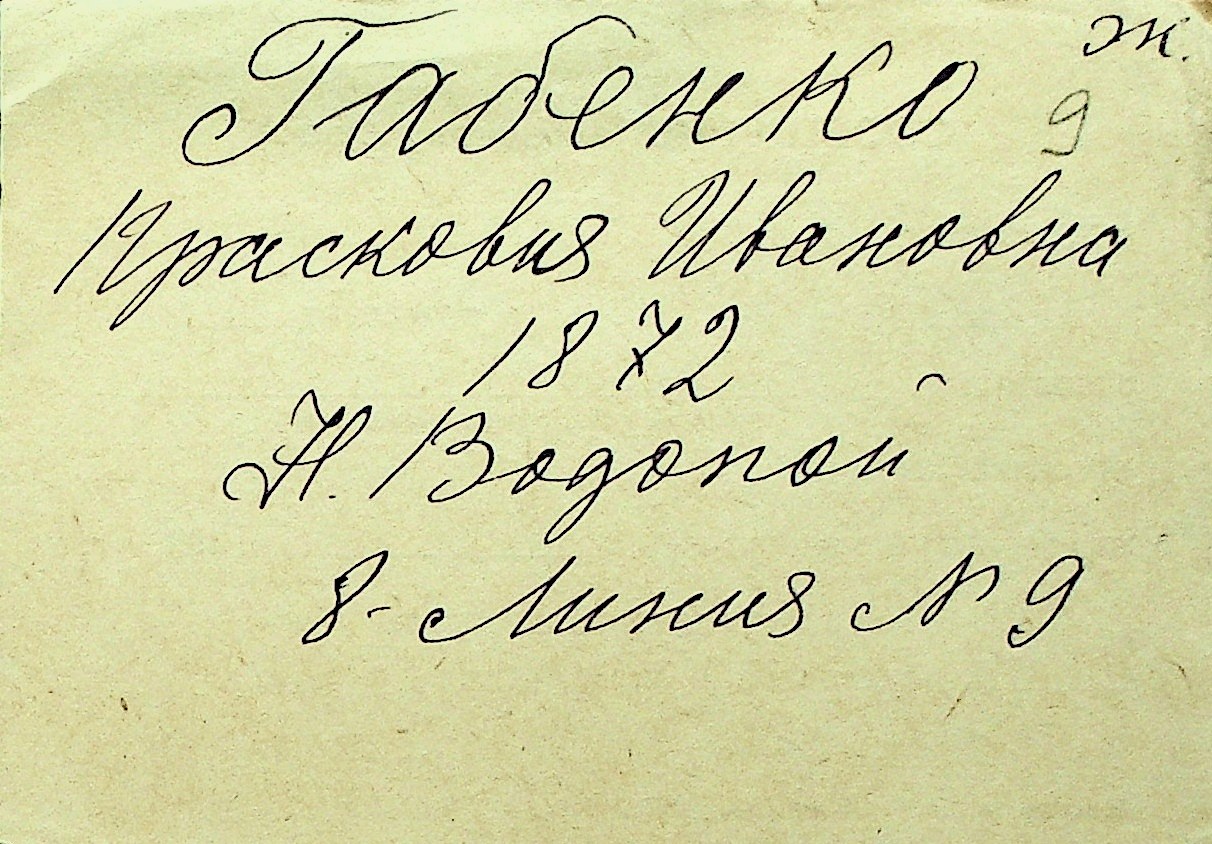 Габенко ж.
9
Прасковия Ивановна
1872
Н. Водопой
8- Линия № 9